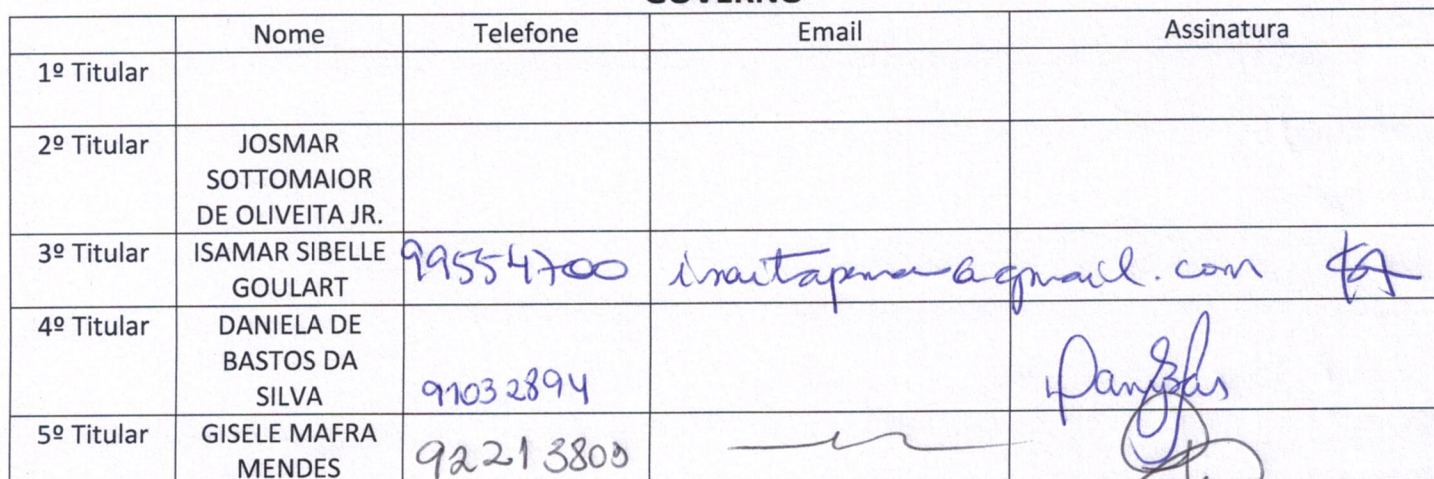 GOVERNO
Nome Telefone Email Assinatura
1º Titular
2º Titular JOSMAR
SOTTOMAIOR
DE OLIVEITA JR.
3º Titular ISAMAR SIBELLE 99554700 @gmail.com
GOULART
4º Titular DANIELA DE
BASTOS DA
SILVA 91032894
5º Titular GISELE MAFRA 92213805
MENDES